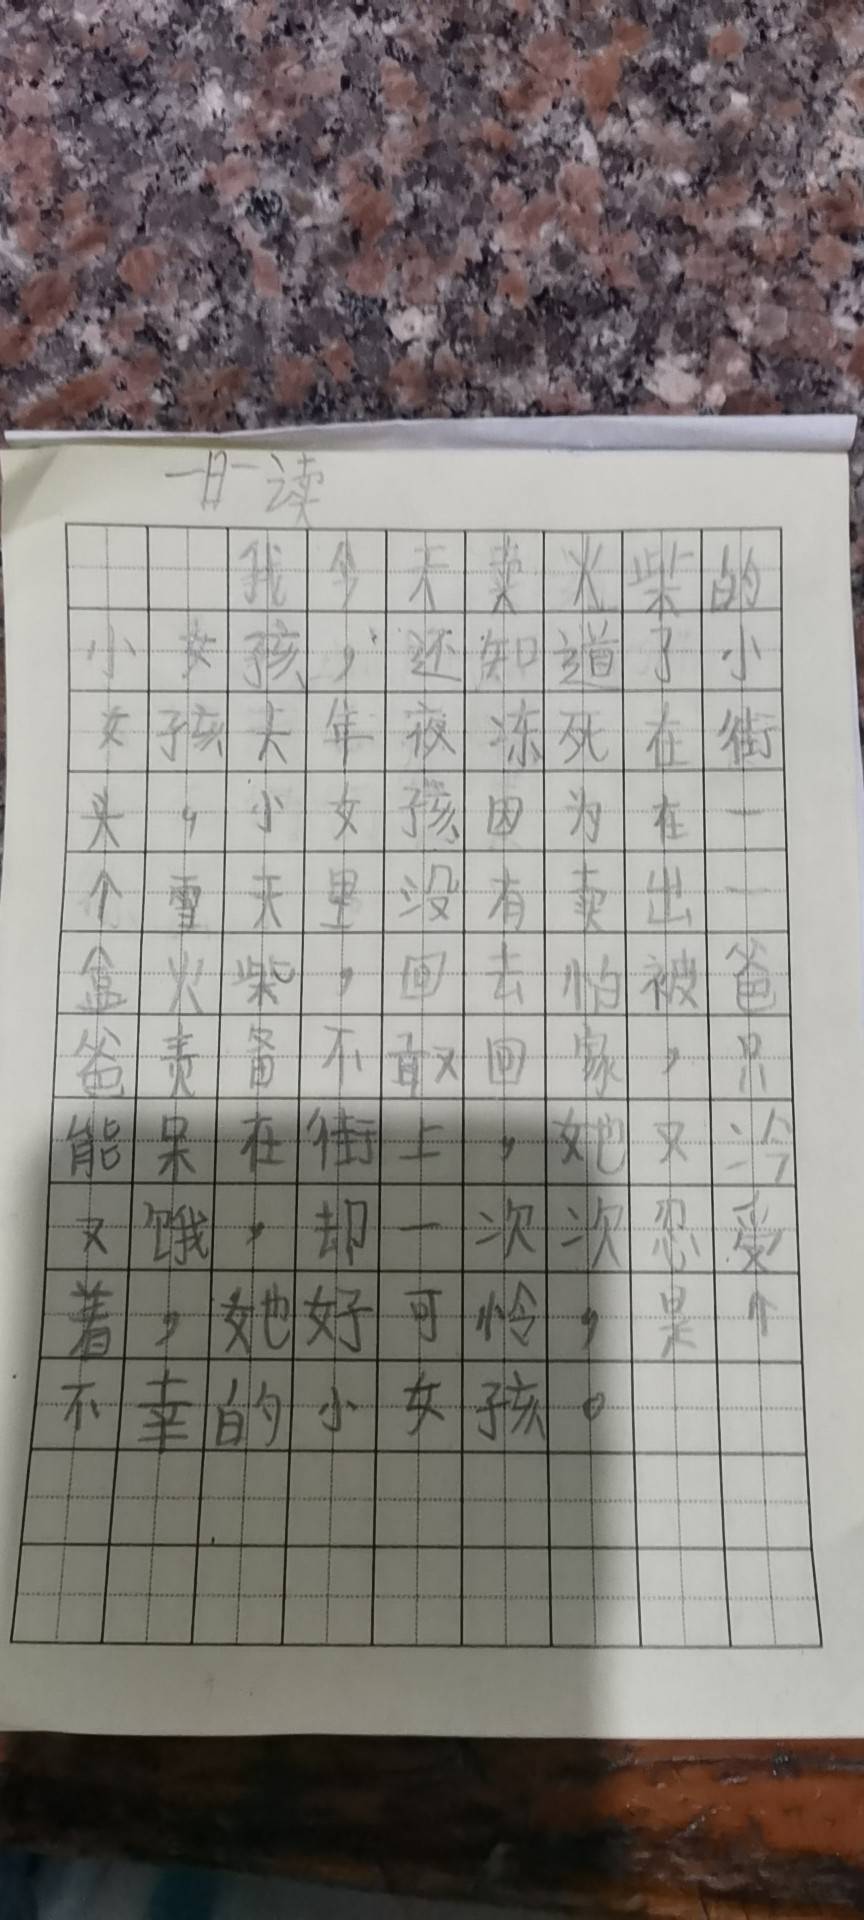 一日一读
我今天卖火柴的
小女孩，还知道了小
女孩大年夜冻死在街
头，小女孩因为在一
个雪天里没有卖出一
盒火柴，回去怕被爸
爸责备不敢回家，只
能呆在街上，她又冷
又饿，却一次次忍受
着，她好可怜，是个
不幸的小女孩。